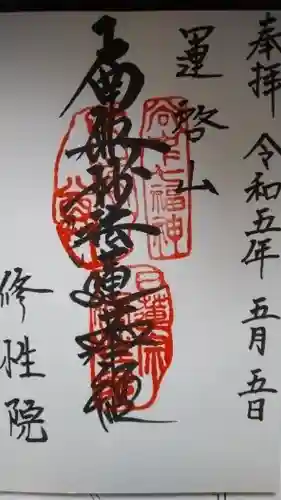 奉拝 令和五年 五月 五日
運啓山
南無妙法蓮華経
谷中七福神
修性院